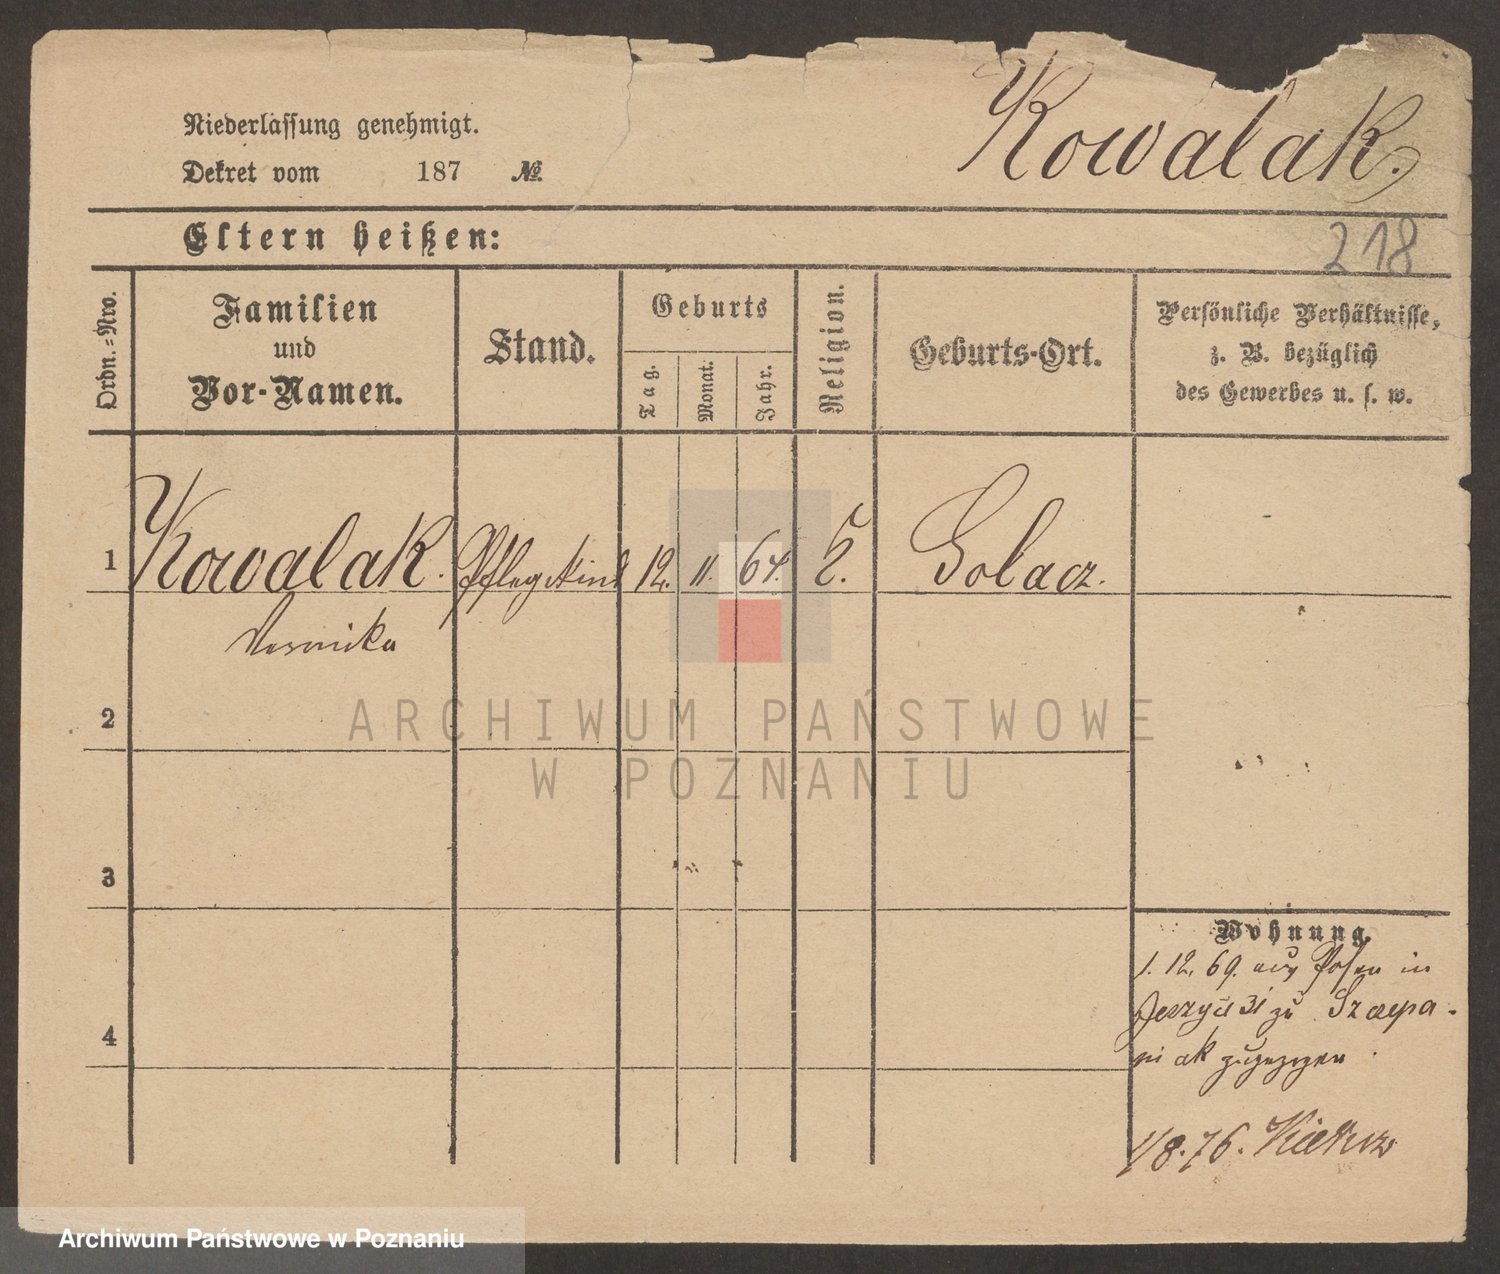 Niederlassung genehmigt.
Dekret vom 187 №
Kowalak.
218
Eltern heißen:
Ordn.=Nro.
Familien
und
Vor-Namen.
Stand.
Geburts
Tag.
Monat.
Jahr.
Religion.
Geburts-Ort.
Persönliche Verhältnisse,
z. B. bezüglich
des Gewerbes u. s. w.
1 Kowalak. Pflegekind 12. 11. 64. Golacz.
Veronika
2
3
4
Wohnung.
1. 12. 69. aus Posen in
31 zu Szczepa-
niak zugezogen
1/8.76.
ARCHIWUM PAŃSTWOWE
W POZNANIU
Archiwum Państwowe w Poznaniu